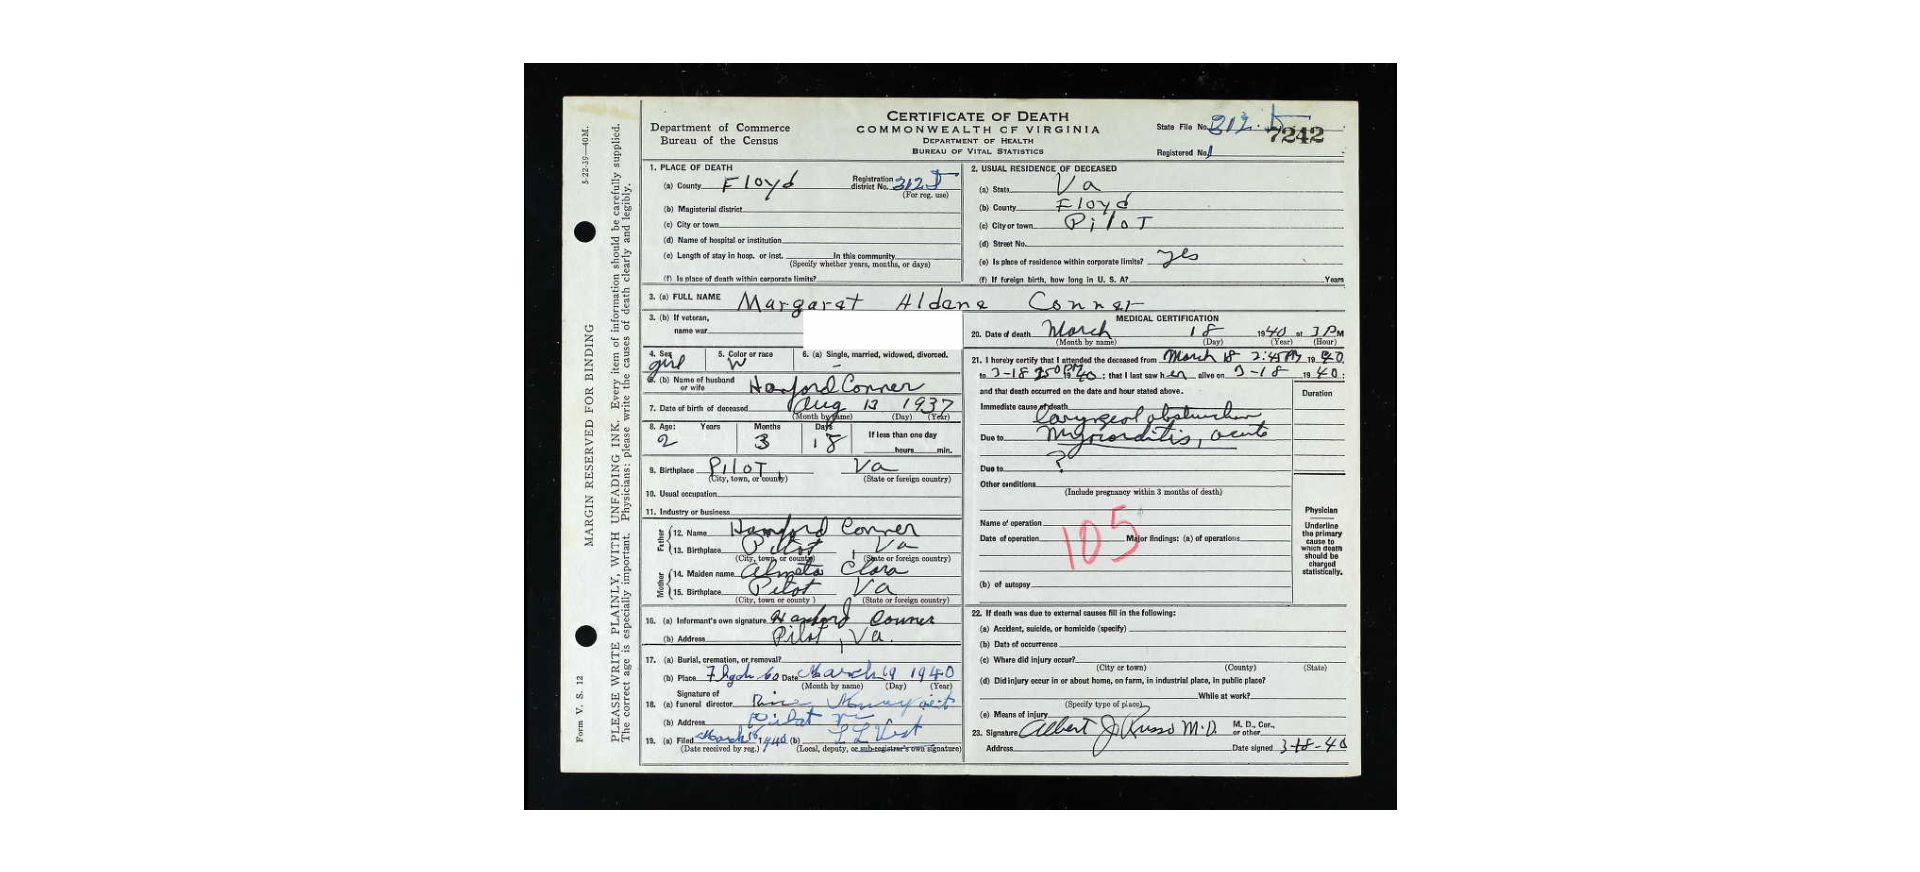 CERTIFICATE OF DEATH
COMMONWEALTH OF VIRGINIA
DEPARTMENT OF HEALTH
BUREAU OF VITAL STATISTICS
Department of Commerce
Bureau of the Census
State File No. 312 7242
Registered No. 1
5-22-39—40M.
MARGIN RESERVED FOR BINDING
Form V. S. 12
PLEASE WRITE PLAINLY, WITH UNFADING INK. Every item of information should be carefully supplied.
The correct age is especially important. Physicians: please write the causes of death clearly and legibly.
1. PLACE OF DEATH
(a) County Floyd Registration district No. 312
(For reg. use)
(b) Magisterial district
(c) City or town
(d) Name of hospital or institution
(e) Length of stay in hosp. or inst. In this community
(Specify whether years, months, or days)
(f) Is place of death within corporate limits?
2. USUAL RESIDENCE OF DECEASED
(a) State Va
(b) County Floyd
(c) City or town Pilot
(d) Street No.
(e) Is place of residence within corporate limits? yes
(f) If foreign birth, how long in U. S. A? Years
3. (a) FULL NAME Margaret Aldene Conner
3. (b) If veteran,
name war
4. Sex girl
5. Color or race W
6. (a) Single, married, widowed, divorced. -
6. (b) Name of husband or wife Hanford Conner
7. Date of birth of deceased Aug 13 1937
(Month by name) (Day) (Year)
8. Age: Years Months Days If less than one day
2 3 18
hours min.
9. Birthplace Pilot, Va
(City, town, or county) (State or foreign country)
10. Usual occupation
11. Industry or business
Father
12. Name Hanford Conner
13. Birthplace Pilot, Va
(City, town, or county) (State or foreign country)
Mother
14. Maiden name Almeta Clara
15. Birthplace Pilot Va
(City, town or county) (State or foreign country)
16. (a) Informant's own signature Hanford Conner
(b) Address Pilot, Va.
17. (a) Burial, cremation, or removal?
(b) Place Co Date March 19 1940
(Month by name) (Day) (Year)
Signature of
18. (a) funeral director
(b) Address Pilot Va
19. (a) Filed March 1940 (b) L L Vest
(Date received by reg.) (Local, deputy, or sub-registrar's own signature)
MEDICAL CERTIFICATION
20. Date of death March 18 1940 at 3 PM
(Month by name) (Day) (Year) (Hour)
21. I hereby certify that I attended the deceased from March 18 2:45 PM 1940,
to 3-18 1940; that I last saw her alive on 3-18 1940;
and that death occurred on the date and hour stated above.
Duration
Immediate cause of death laryngeal obstruction
Due to Myocarditis, acute
Due to ?
Other conditions
(Include pregnancy within 3 months of death)
105
Name of operation
Date of operation Major findings: (a) of operations
(b) of autopsy
Physician
Underline
the primary
cause to
which death
should be
charged
statistically.
22. If death was due to external causes fill in the following:
(a) Accident, suicide, or homicide (specify)
(b) Date of occurrence
(c) Where did injury occur?
(City or town) (County) (State)
(d) Did injury occur in or about home, on farm, in industrial place, in public place?
While at work?
(Specify type of place)
(e) Means of injury
23. Signature Albert J Russo M.D. M. D., Cor., or other
Address Date signed 3-18-40